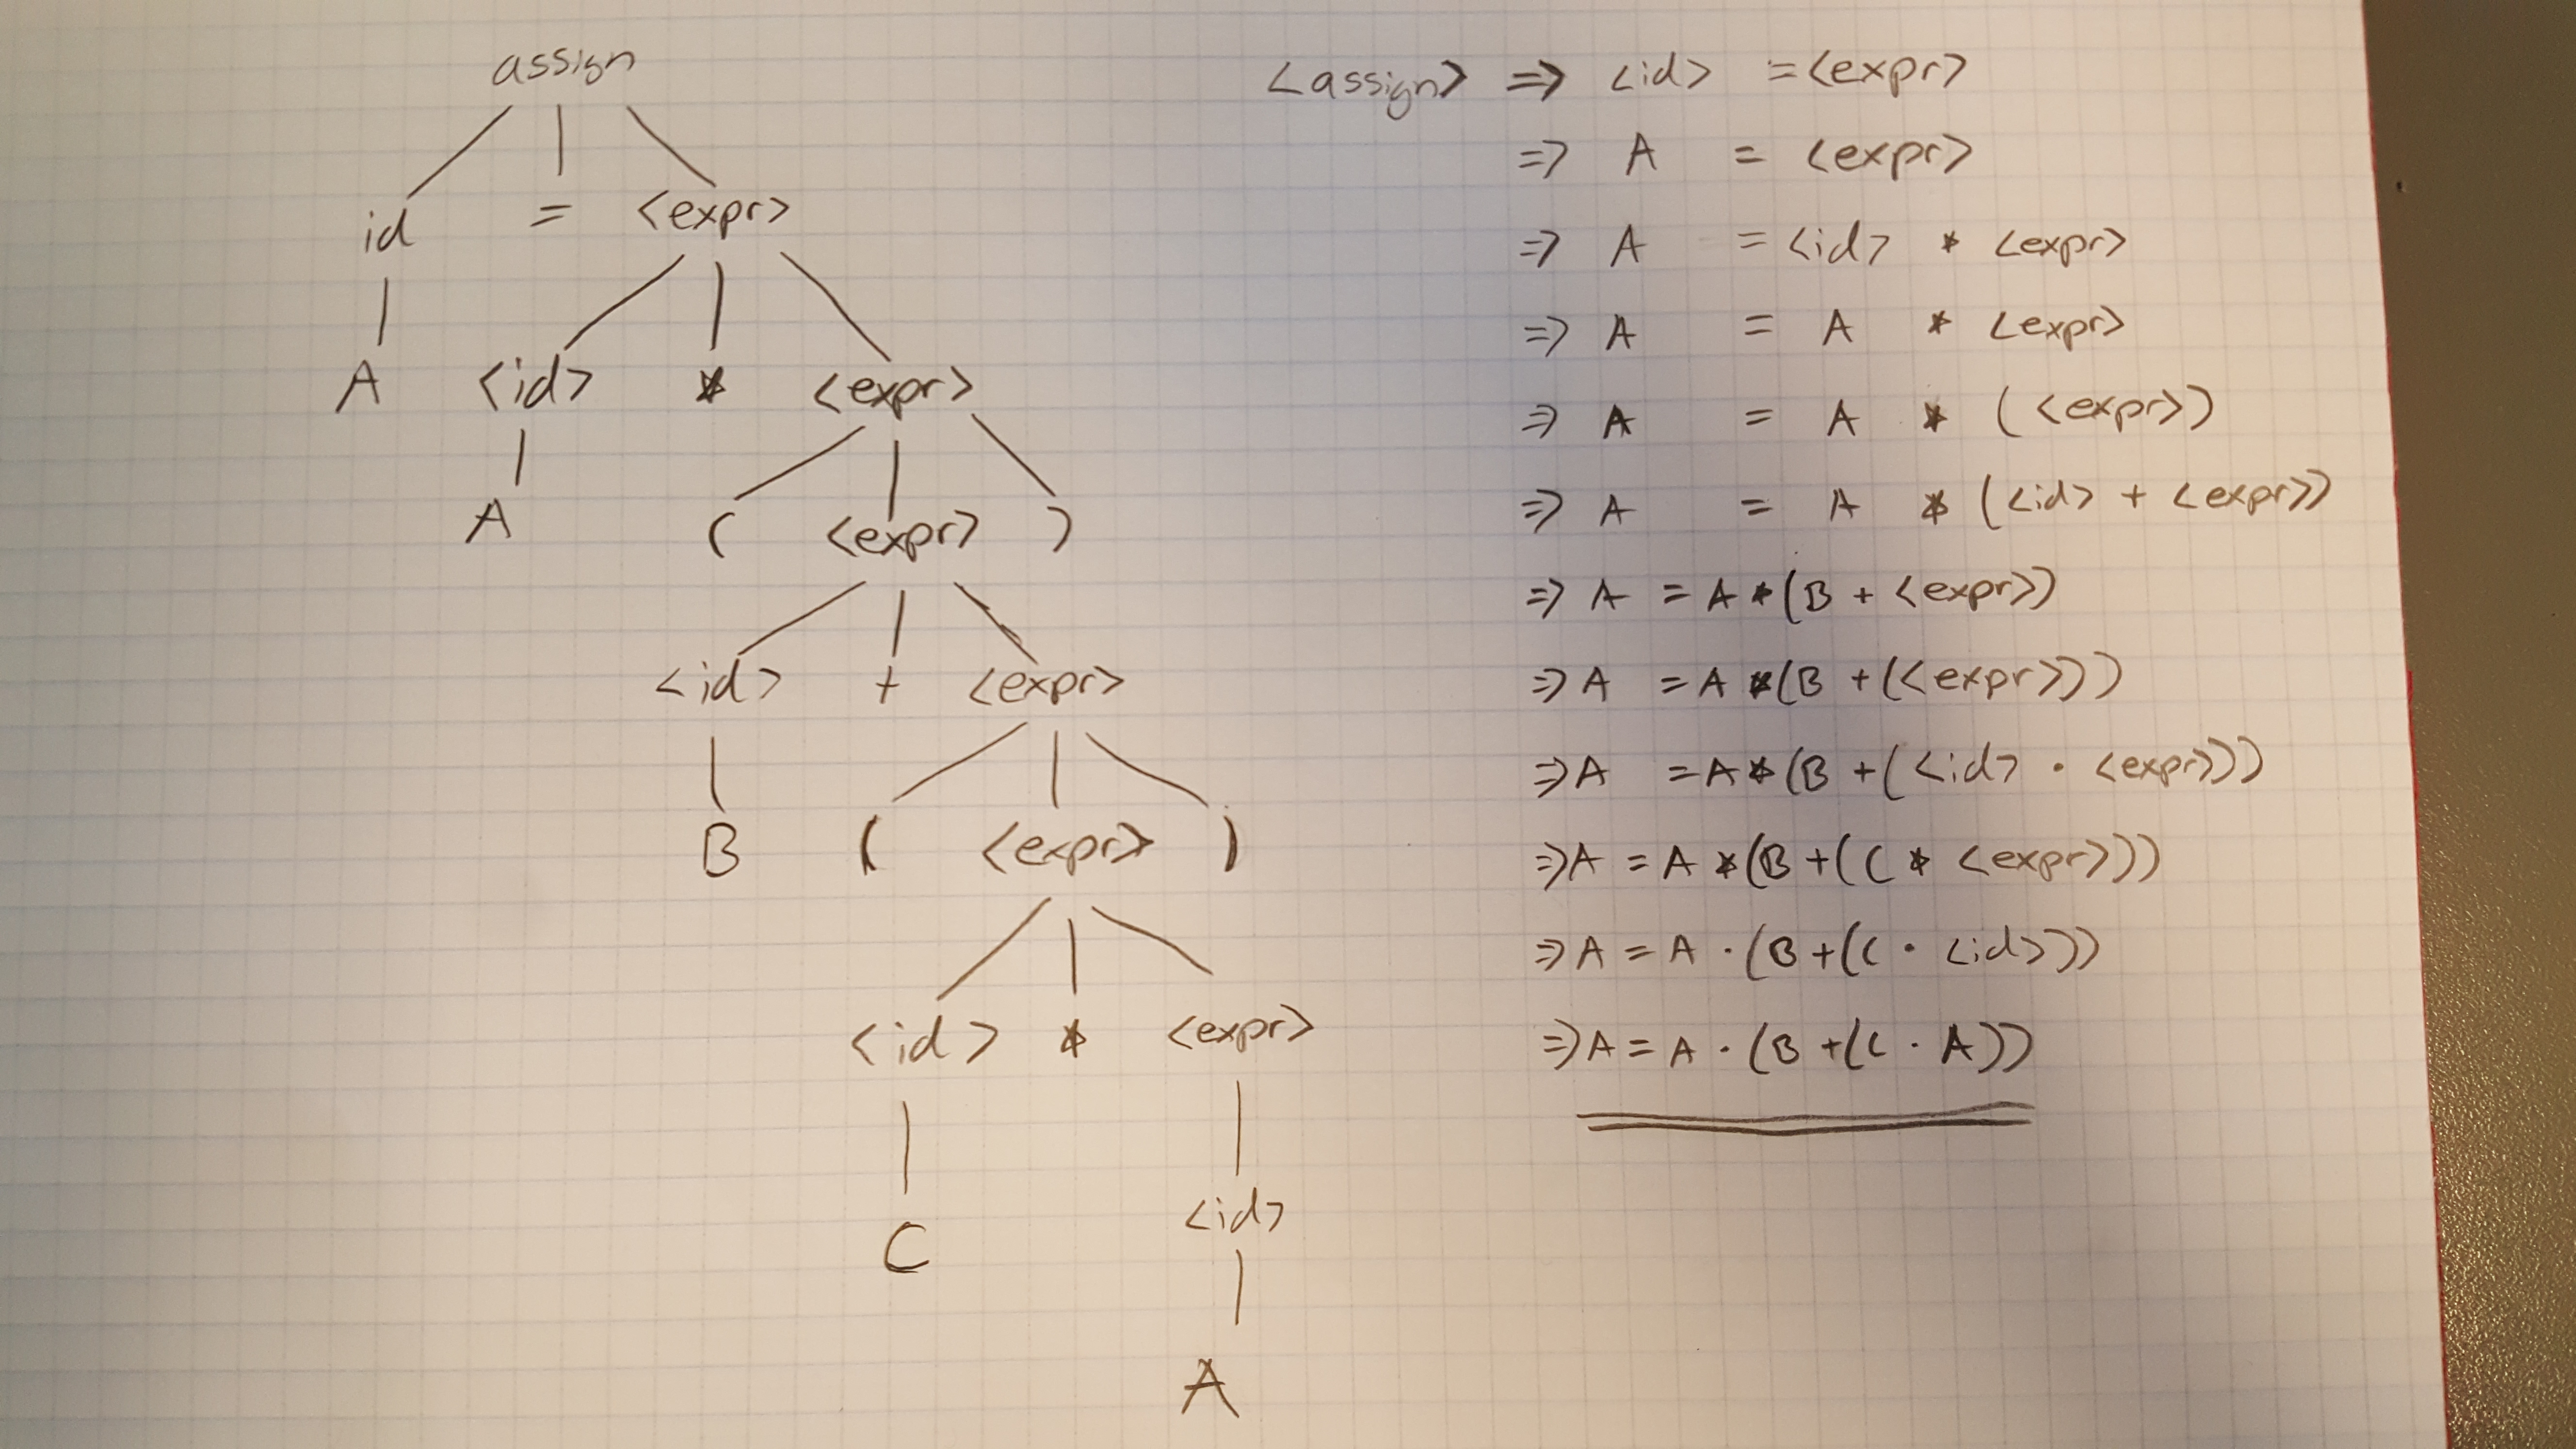 assign
id = <expr>
A <id> * <expr>
A ( <expr> )
<id> + <expr>
B ( <expr> )
<id> * <expr>
C <id>
A
<assign> => <id> = <expr>
=> A = <expr>
=> A = <id> * <expr>
=> A = A * <expr>
=> A = A * (<expr>)
=> A = A * (<id> + <expr>)
=> A = A * (B + <expr>)
=> A = A * (B + (<expr>))
=> A = A * (B + (<id> · <expr>))
=> A = A * (B + (C * <expr>))
=> A = A · (B + (C · <id>))
=> A = A · (B + (C · A))